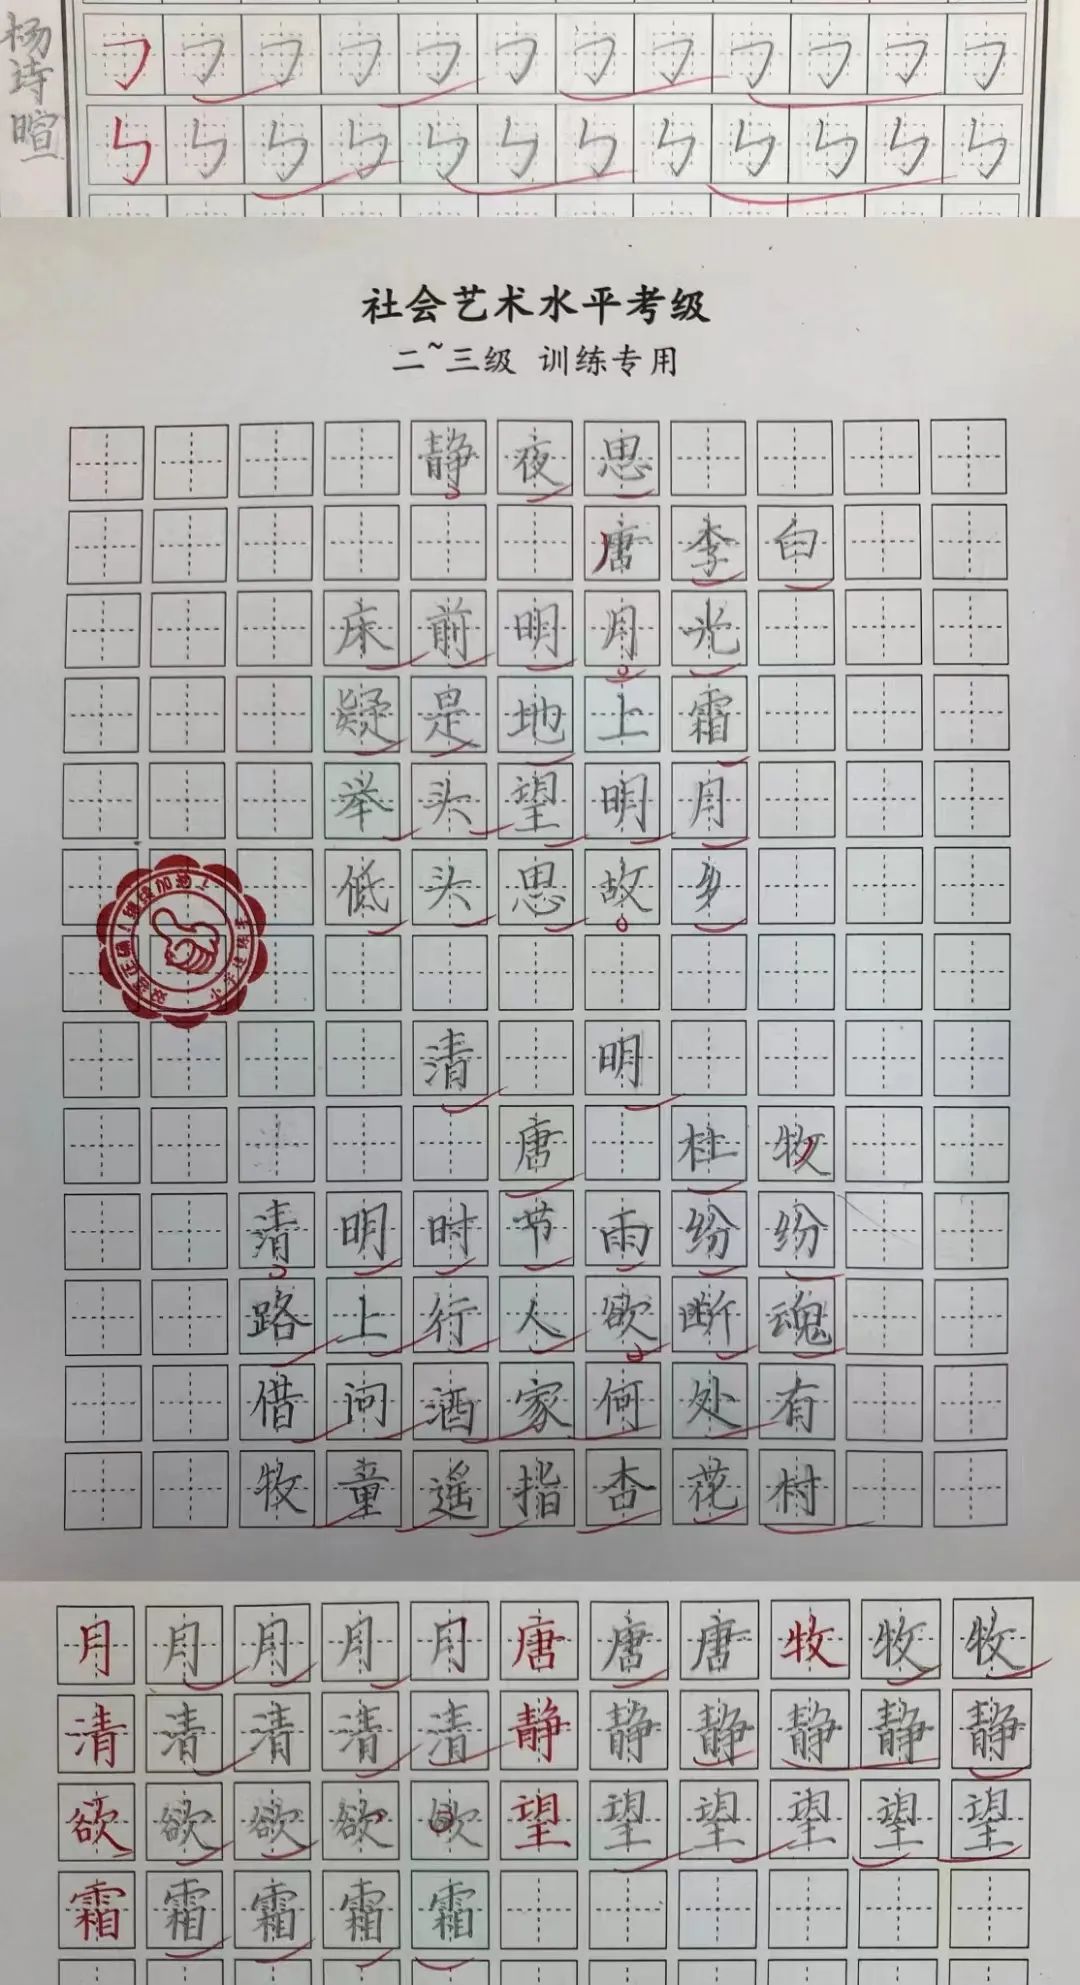 杨诗暄
社会艺术水平考级
二~三级 训练专用
静夜思
唐李白
床前明月光
疑是地上霜
举头望明月
低头思故乡
清明
唐 杜牧
清明时节雨纷纷
路上行人欲断魂
借问酒家何处有
牧童遥指杏花村
月月月月月唐唐唐牧牧牧
清清清清清静静静静静静
欲欲欲欲欲望望望望望望
霜霜霜霜霜